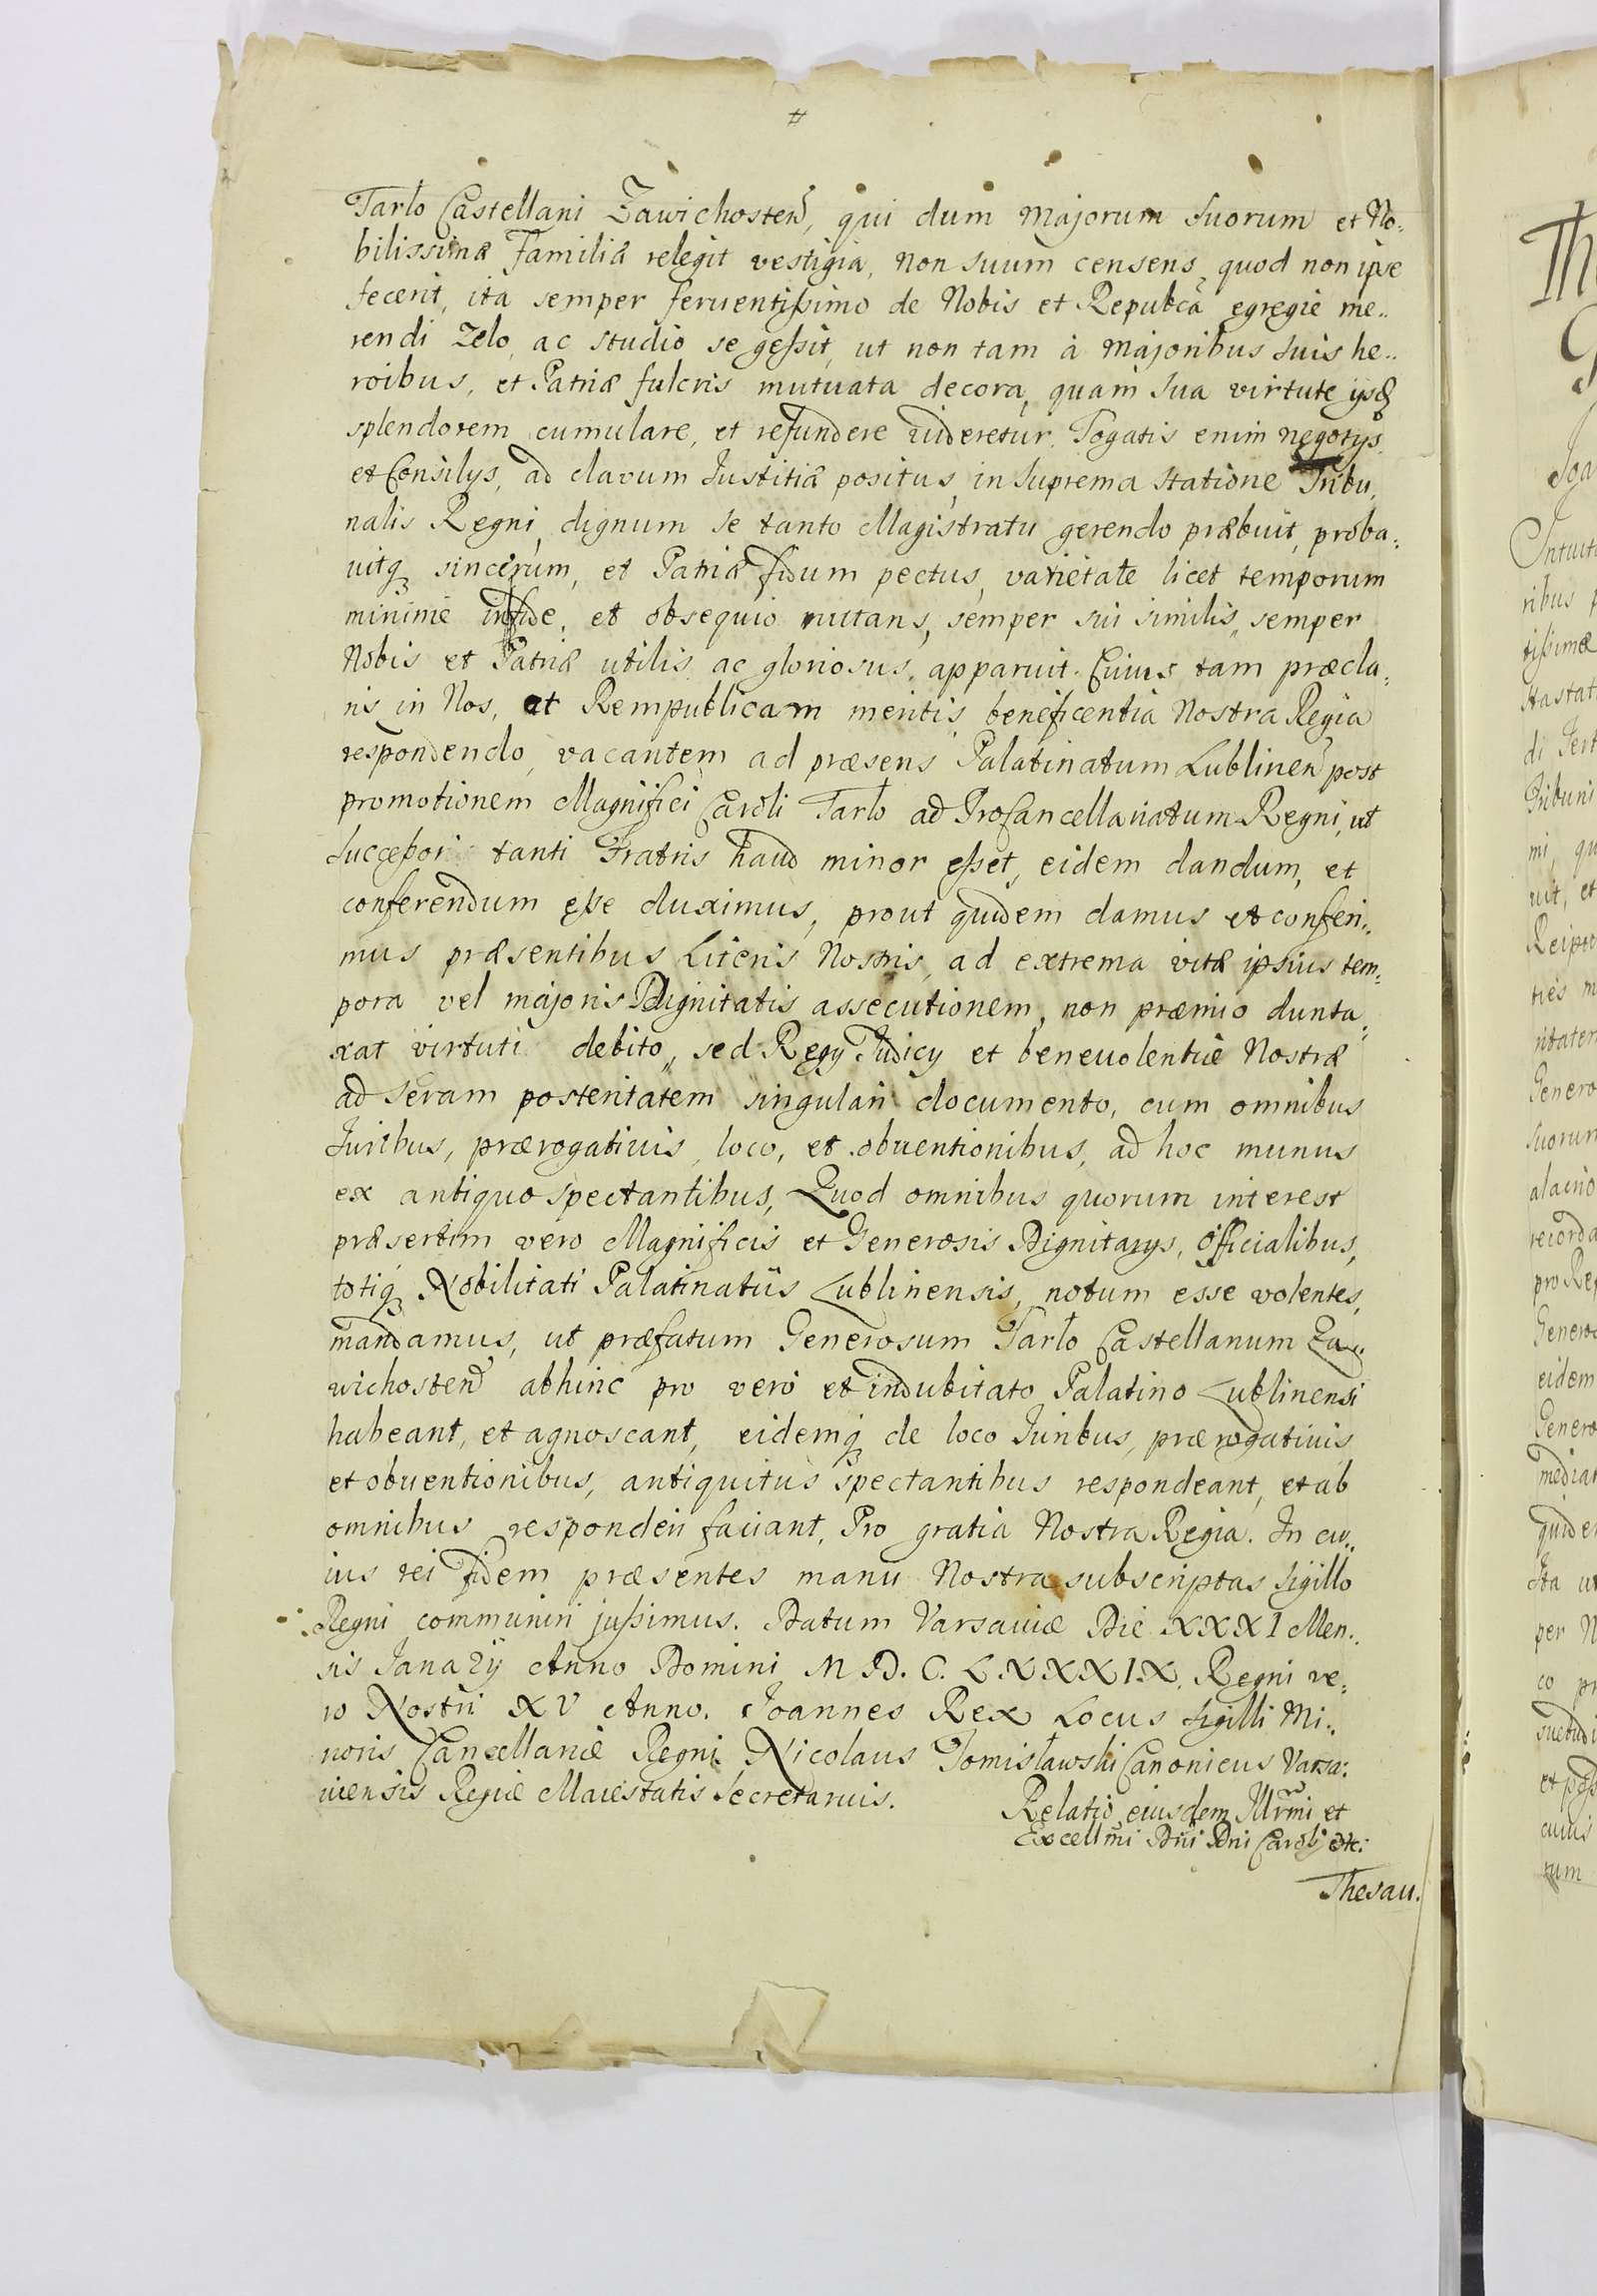 Tarło Castellani Zawichosteñ, qui dum Majorum Suorum et No:
bilissimæ Familiæ relegit vestigia, non suum censens quod non ipse
fecerit, ita semper feruentißimo de Nobis et Repubcâ egregie me..
rendi Zelo, ac studio se geßit, ut non tam à Majoribus suis he..
roibus, et Patriæ fulcris mutuata decora, quam sua virtute
splendorem cumulare, et refundere uideretur. Togatis enim negotys
et Consilys, ad clavum Justitiæ positus, in suprema statione Tribu,
nalis Regni, dignum se tanto Magistratu gerendo præbuit, proba:
uitq sincerum, et Patriæ fidum pectus, varietate licet temporum
minime infide, et obsequio nutans, semper sui similis, semper
Nobis et Patriæ utilis ac gloriosus, apparuit. Cuius tam præcla:
ris in Nos, et Rempublicam meritis beneficentia Nostra Regia
respondendo, vacantem ad præsens Palatinatum Lublineñ post
promotionem Magnifici Caroli Tarło ad ProCancellariatum Regni, ut
Succeßor tanti Fratris haud minor eßet, eidem dandum, et
conferendum eße duximus, prout quidem damus et conferi..
mus præsentibus Literis Nostris, ad extrema vitæ ipsius tem:
pora vel majoris Dignitatis assecutionem, non præmio dunta:
xat virtuti debito, sed Regy Judicy et beneuolentiæ Nostræ
ad seram posteritatem singulari documento, cum omnibus
Juribus, prærogatiuis, loco, et obuentionibus, ad hoc munus
ex antiquo spectantibus, Quod omnibus quorum interest
præsertim vero Magnificis et Generosis Dignitarys, Officialibus,
totiq Nobilitati Palatinatûs Lublinensis, notum esse volentes,
mandamus, ut præfatum Generosum Tarło Castellanum Za..
wichosteñ abhinc pro vero et indubitato Palatino Lublinensi
habeant, et agnoscant, eidemq de loco Juribus, prærogatiuis
et obuentionibus, antiquitus spectantibus respondeant, et ab
omnibus responderi faciant, Pro gratia Nostra Regia. In cu..
ius rei fidem præsentes manu Nostra subscriptas Sigillo
Regni communiri jußimus. Datum Varsauiæ Die XXXI Men..
sis Janary Anno Domini M.D.C.LXXXIX. Regni ve:
ro Nostri XV Anno. Joannes Rex Locus Sigilli Mi..
noris Cancellariæ Regni Nicolaus Tomisławski Canonicus Varsa:
uiensis Regiæ Maiestatis Secretarius.
Relatio eiusdem Illr̃mi et
Excellm̃i Dñi Dni Caroli etc:
Thesau.